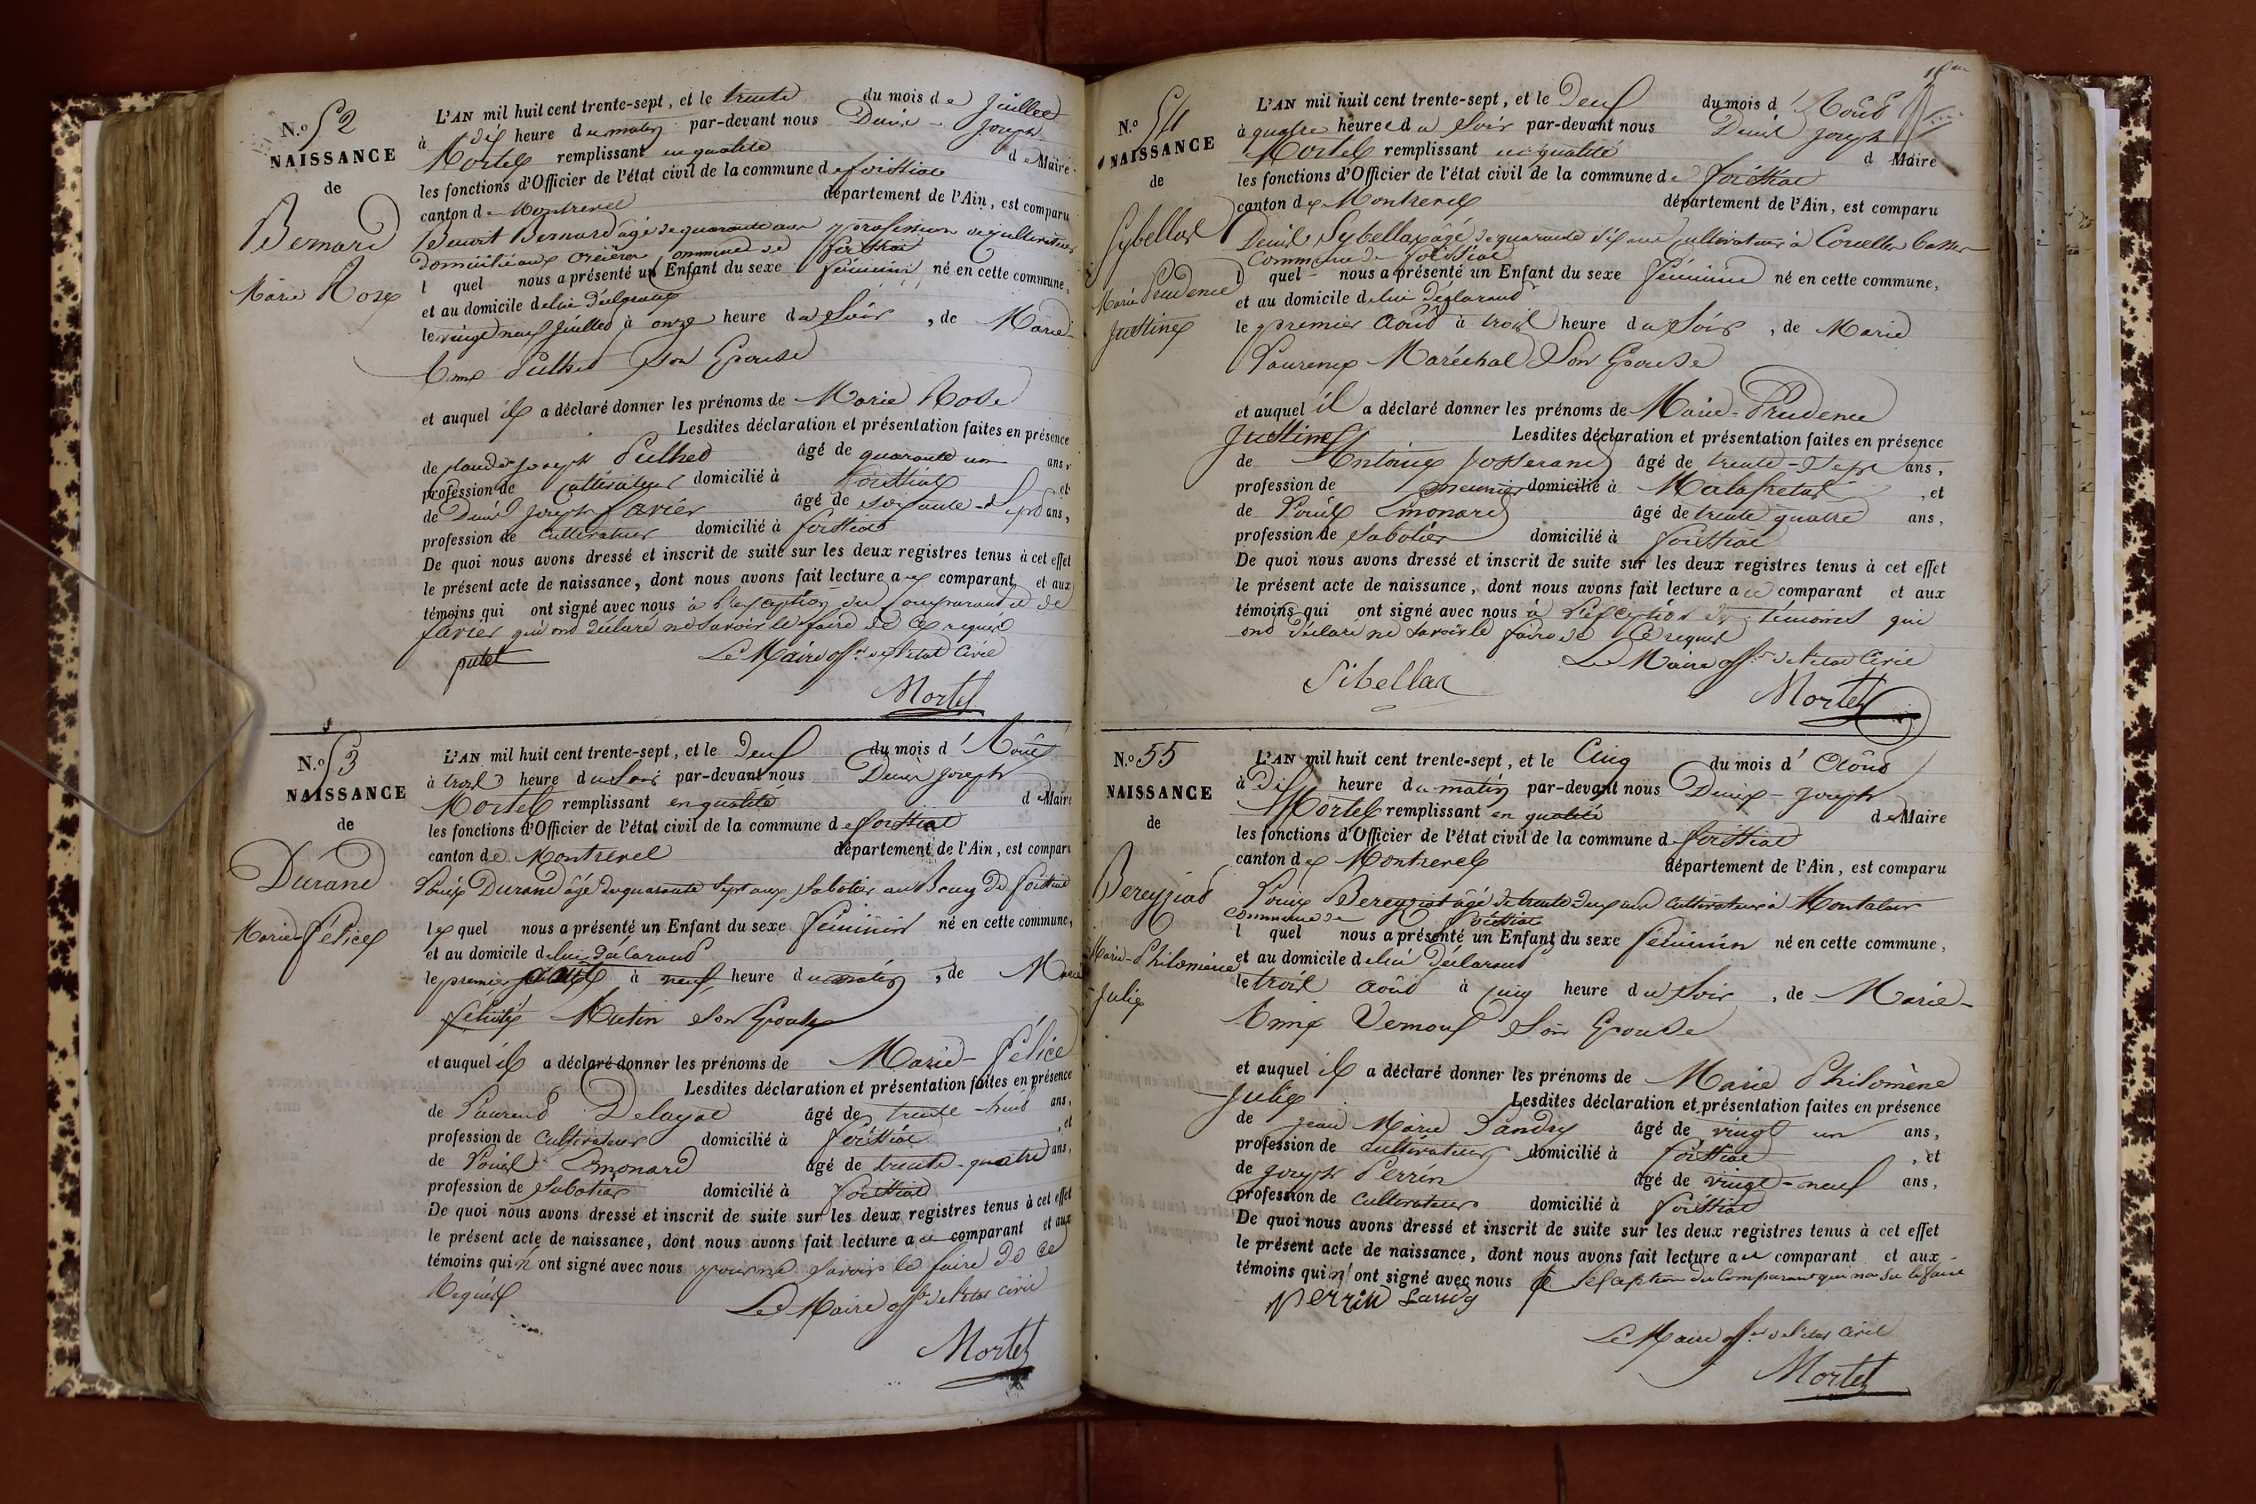 N.o 52
NAISSANCE
de
Bernard
Marie Rose
L'AN mil huit cent trente-sept, et le trente du mois de juillet
à dix heure du matin par-devant nous Denis Joseph
Mortel remplissant en qualité de Maire
les fonctions d'Officier de l'état civil de la commune de foissiat
canton de Montrevel département de l'Ain, est comparu
Benoit Bernard âgé de quarante ans profession de cultivateur
domicilié aux commune de foissiat
l quel nous a présenté un Enfant du sexe féminin né en cette commune,
et au domicile de lui déclarant
le vingt neuf juillet à onze heure du Soir, de Marie
son Epouse
et auquel il a déclaré donner les prénoms de Marie Rose
Lesdites déclaration et présentation faites en présence
de Claude Joseph âgé de quarante un ans,
profession de Cultivateur domicilié à foissiat et
de Denis Joseph favier âgé de soixante-sept ans,
profession de cultivateur domicilié à foissiat
De quoi nous avons dressé et inscrit de suite sur les deux registres tenus à cet effet
le présent acte de naissance, dont nous avons fait lecture au comparant et aux
témoins qui ont signé avec nous à l'exception du Comparant et de
favier qui ont déclaré ne savoir le faire de ce requis
putet Le Maire off. de l'état Civil
Mortel
N.o 53
NAISSANCE
de
Durand
Marie félice
L'AN mil huit cent trente-sept, et le deux du mois d'Août
à trois heure du soir par-devant nous Denis Joseph
Mortel remplissant en qualité de Maire
les fonctions d'Officier de l'état civil de la commune de foissiat
canton de Montrevel département de l'Ain, est comparu
Louis Durand âgé de quarante sept ans sabotier au Bourg de foissiat
le quel nous a présenté un Enfant du sexe féminin né en cette commune,
et au domicile de lui déclarant
le premier août à neuf heure du matin, de Marie
félicité Mutin son Epouse
et auquel il a déclaré donner les prénoms de Marie-félice
Lesdites déclaration et présentation faites en présence
de Laurent Delayat âgé de trente-huit ans,
profession de cultivateur domicilié à foissiat, et
de Louis Emonard âgé de trente-quatre ans,
profession de sabotier domicilié à foissiat
De quoi nous avons dressé et inscrit de suite sur les deux registres tenus à cet effet
le présent acte de naissance, dont nous avons fait lecture au comparant et aux
témoins qui n'ont signé avec nous pour ne savoir le faire de ce
Requis Le Maire off. de l'état civil
Mortel
N.o 54
NAISSANCE
de
Sybellas
Marie Prudence
Justine
L'AN mil huit cent trente-sept, et le deux du mois d'Août
à quatre heures du soir par-devant nous Denis Joseph
Mortel remplissant en qualité de Maire
les fonctions d'Officier de l'état civil de la commune de foissiat
canton de Montrevel département de l'Ain, est comparu
Denis Sybellas âgé de quarante six ans cultivateur à Cornelles basses
Commune de foissiat
l quel nous a présenté un Enfant du sexe féminin né en cette commune,
et au domicile de lui déclarant
le premier août à trois heure du soir, de Marie
Laurence Maréchal Son Epouse
et auquel il a déclaré donner les prénoms de Marie-Prudence
Justine Lesdites déclaration et présentation faites en présence
de Antoine Josserand âgé de trente-sept ans,
profession de meunier domicilié à Malafretaz, et
de Louis Emonard âgé de trente quatre ans,
profession de sabotier domicilié à foissiat
De quoi nous avons dressé et inscrit de suite sur les deux registres tenus à cet effet
le présent acte de naissance, dont nous avons fait lecture au comparant et aux
témoins qui ont signé avec nous à l'exception des témoins qui
ont déclaré ne savoir le faire de ce requis
Le Maire off. de l'état Civil
Sibellas Mortel
N.o 55
NAISSANCE
de
Bereyziat
Marie-Philomène
Julie
L'AN mil huit cent trente-sept, et le Cinq du mois d'Août
à Dix heure du matin par-devant nous Denis-Joseph
Mortel remplissant en qualité de Maire
les fonctions d'Officier de l'état civil de la commune de foissiat
canton de Montrevel département de l'Ain, est comparu
Louis Bereyziat âgé de trente deux ans cultivateur à Montalair
commune de foissiat
l quel nous a présenté un Enfant du sexe féminin né en cette commune,
et au domicile de lui déclarant
le trois août à cinq heure du soir, de Marie-
Anne Vernoux Son Epouse
et auquel il a déclaré donner les prénoms de Marie Philomène
Julie Lesdites déclaration et présentation faites en présence
de Jean Marie Landry âgé de vingt un ans,
profession de cultivateur domicilié à foissiat, et
de Joseph Perrin âgé de vingt-neuf ans,
profession de cultivateur domicilié à foissiat
De quoi nous avons dressé et inscrit de suite sur les deux registres tenus à cet effet
le présent acte de naissance, dont nous avons fait lecture au comparant et aux
témoins qui ont signé avec nous à l'exception du Comparant qui n'a su le faire
Perrin Landry
Le Maire off. de l'état Civil
Mortel